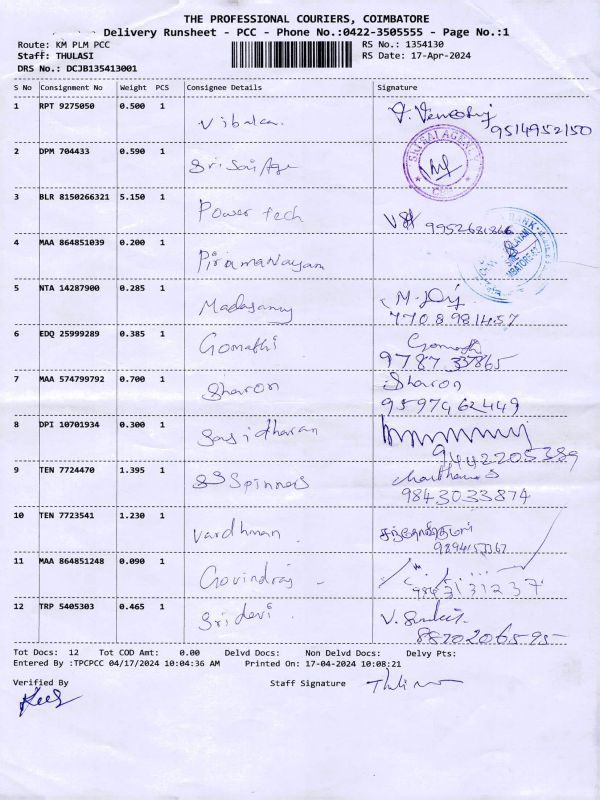 THE PROFESSIONAL COURIERS, COIMBATORE
Delivery Runsheet - PCC - Phone No.:0422-3505555 - Page No.:1
Route: KM PLM PCC
RS No.: 1354130
Staff: THULASI
RS Date: 17-Apr-2024
DRS No.: DCJB135413001
S No Consignment No Weight PCS Consignee Details Signature
1 RPT 9275050 0.500 1 Vibalca.
9514952150
2 DPM 704433 0.590 1 Sri Sai Age
SRI SAI AGENCY
CBE
3 BLR 8150266321 5.150 1 Power tech
9952681866
BANK
4 MAA 864851039 0.200 1 Piramanayam
5 NTA 14287900 0.285 1 Madasamy
7708981457
6 EDQ 25999289 0.385 1 Gomathi Gomathi
9787337865
7 MAA 574799792 0.700 1 Sharon Sharon
9597462449
8 DPI 10701934 0.300 1 Sasidharan
9442205389
9 TEN 7724470 1.395 1 SS Spinners
9843033874
10 TEN 7723541 1.230 1 Vardhman.
11 MAA 864851248 0.090 1 Govindraj
12 TRP 5405303 0.465 1 Sridevi
8870206595
Tot Docs: 12 Tot COD Amt: 0.00 Delvd Docs: Non Delvd Docs: Delvy Pts:
Entered By :TPCPCC 04/17/2024 10:04:36 AM Printed On: 17-04-2024 10:08:21
Verified By Staff Signature